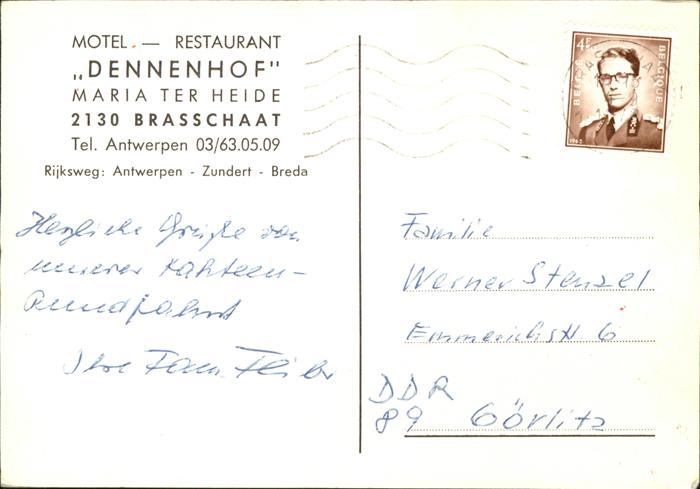 MOTEL — RESTAURANT
„DENNENHOF"
MARIA TER HEIDE
2130 BRASSCHAAT
Tel. Antwerpen 03/63.05.09
Rijksweg: Antwerpen - Zundert - Breda
4F
BELGIË BELGIQUE
Herzliche Grüße von
unserer
Rundfahrt
Ihre Fam.
Familie
Werner Stenzel
Emmerichstr 6
DDR
89 Görlitz